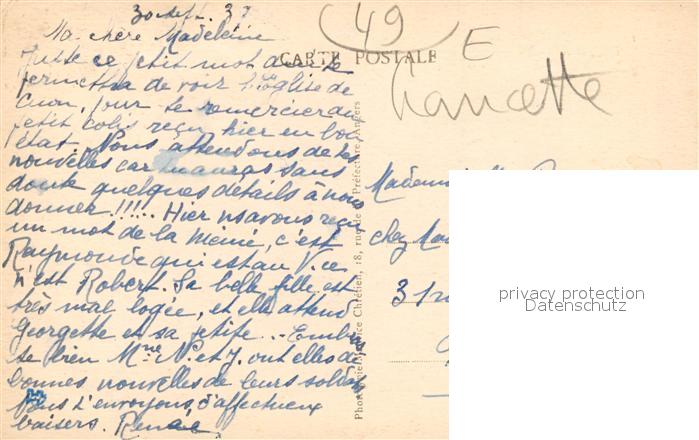 30 Sept. 39
Ma chère Madeleine
Juste ce petit mot qui te
permettra de voir l'Eglise de
Cuon, pour te remercier du
petit colis reçu hier en bon
état. Nous attendons de tes
nouvelles car tu auras sans
doute quelques détails à nous
donner !!!... Hier ns avons reçu
un mot de la Mémé, c'est
Raymonde qui est au
n'est Robert. Sa belle fille est
très mal logée, et elle attend
Georgette et sa petite. - Embrasse
te bien Mme N. et J. ont elles de
bonnes nouvelles de leurs soldats
Nous t'envoyons d'affectueux
baisers. Renée
CARTE POSTALE
49
E
Chancette
Phototypie Chrétien, 18, rue de la Préfecture, Angers
Mademoiselle
chez
31
privacy protection
Datenschutz